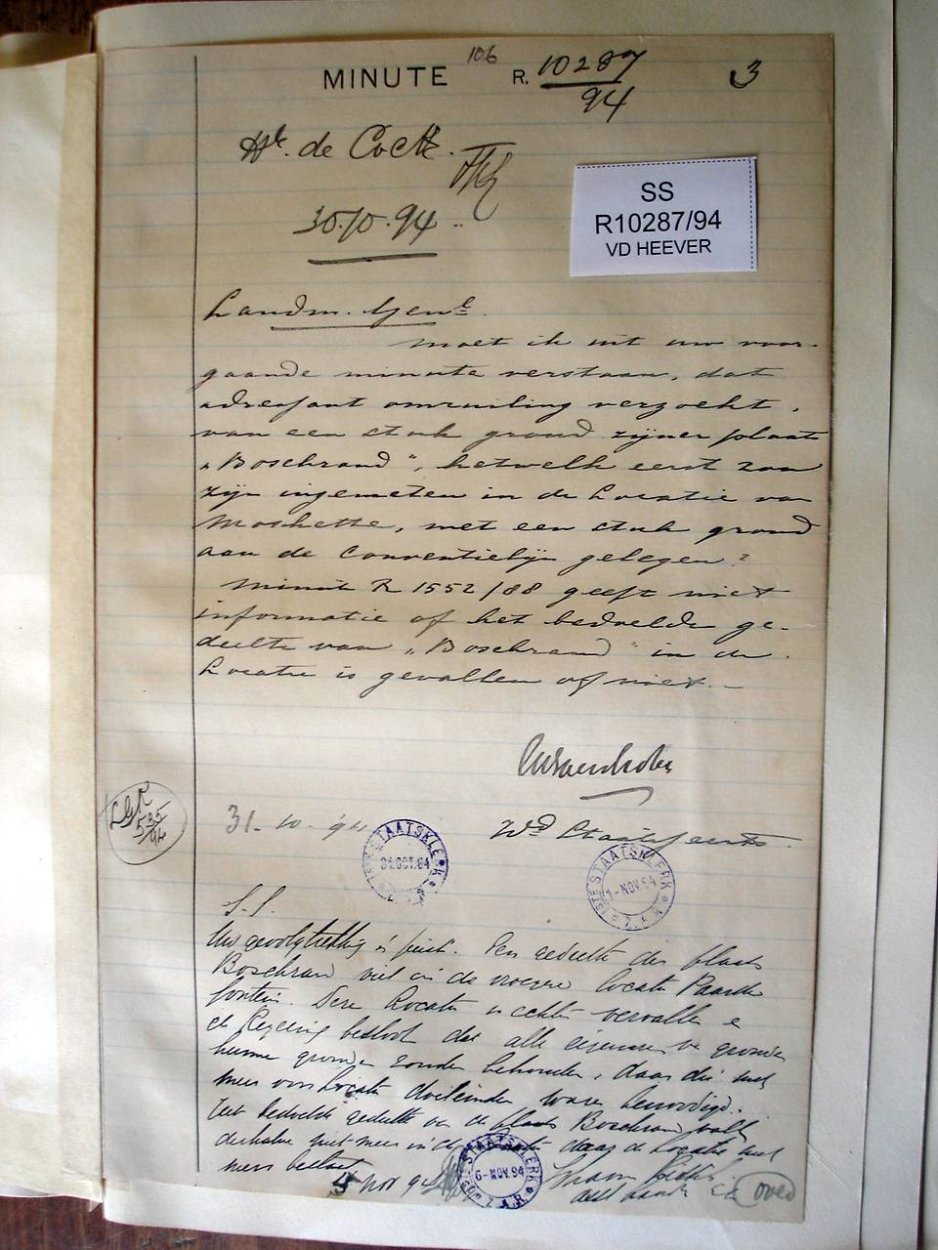 106
MINUTE R. 10287/94 3
de Cock.
30.10.94
SS
R10287/94
VD HEEVER
Landm. Genl
moet ik uit uw voor-
gaande minute verstaan, dat
adressant omruiling verzocht,
van een stuk grond zijner plaats
„Boschrand", hetwelk eerst zou
zijn ingemeten in de Locatie van
Moshette, met een stuk grond
aan de Conventielijn gelegen?
Minute R 1552/88 geeft niet
informatie of het bedoelde ge-
deelte van „Boschrand" in de
Locatie is gevallen of niet.-
LGR
535/94
31.10.94
Wd Staatssecrts.
STAATSKLERK
31 OCT. 94
1STE STAATSKLERK
1-NOV 94
Z.A.R.
S.S.
Uw gevolgtrekking is juist. Een gedeelte der plaats
Boschrand viel in de vroegere Locatie Paarde
fontein. Deze Locatie is echter vervallen e
de Regeering besloot dat alle eigenaren de gronden
hunne gronden zouden behouden, daar die niet
meer voor Locatie doeleinden waren benoodigd.
Het bedoelde gedeelte van de plaats Boschrand valt
derhalve niet meer in de Locatie daar de Locatie niet
meer bestaat
5 Nov 94
STAATSKLERK
6-NOV 94
Z.A.R.
over